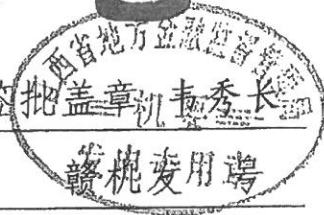 西省地方金融监督管理局
签批盖章 机 韦秀长
赣机发用号